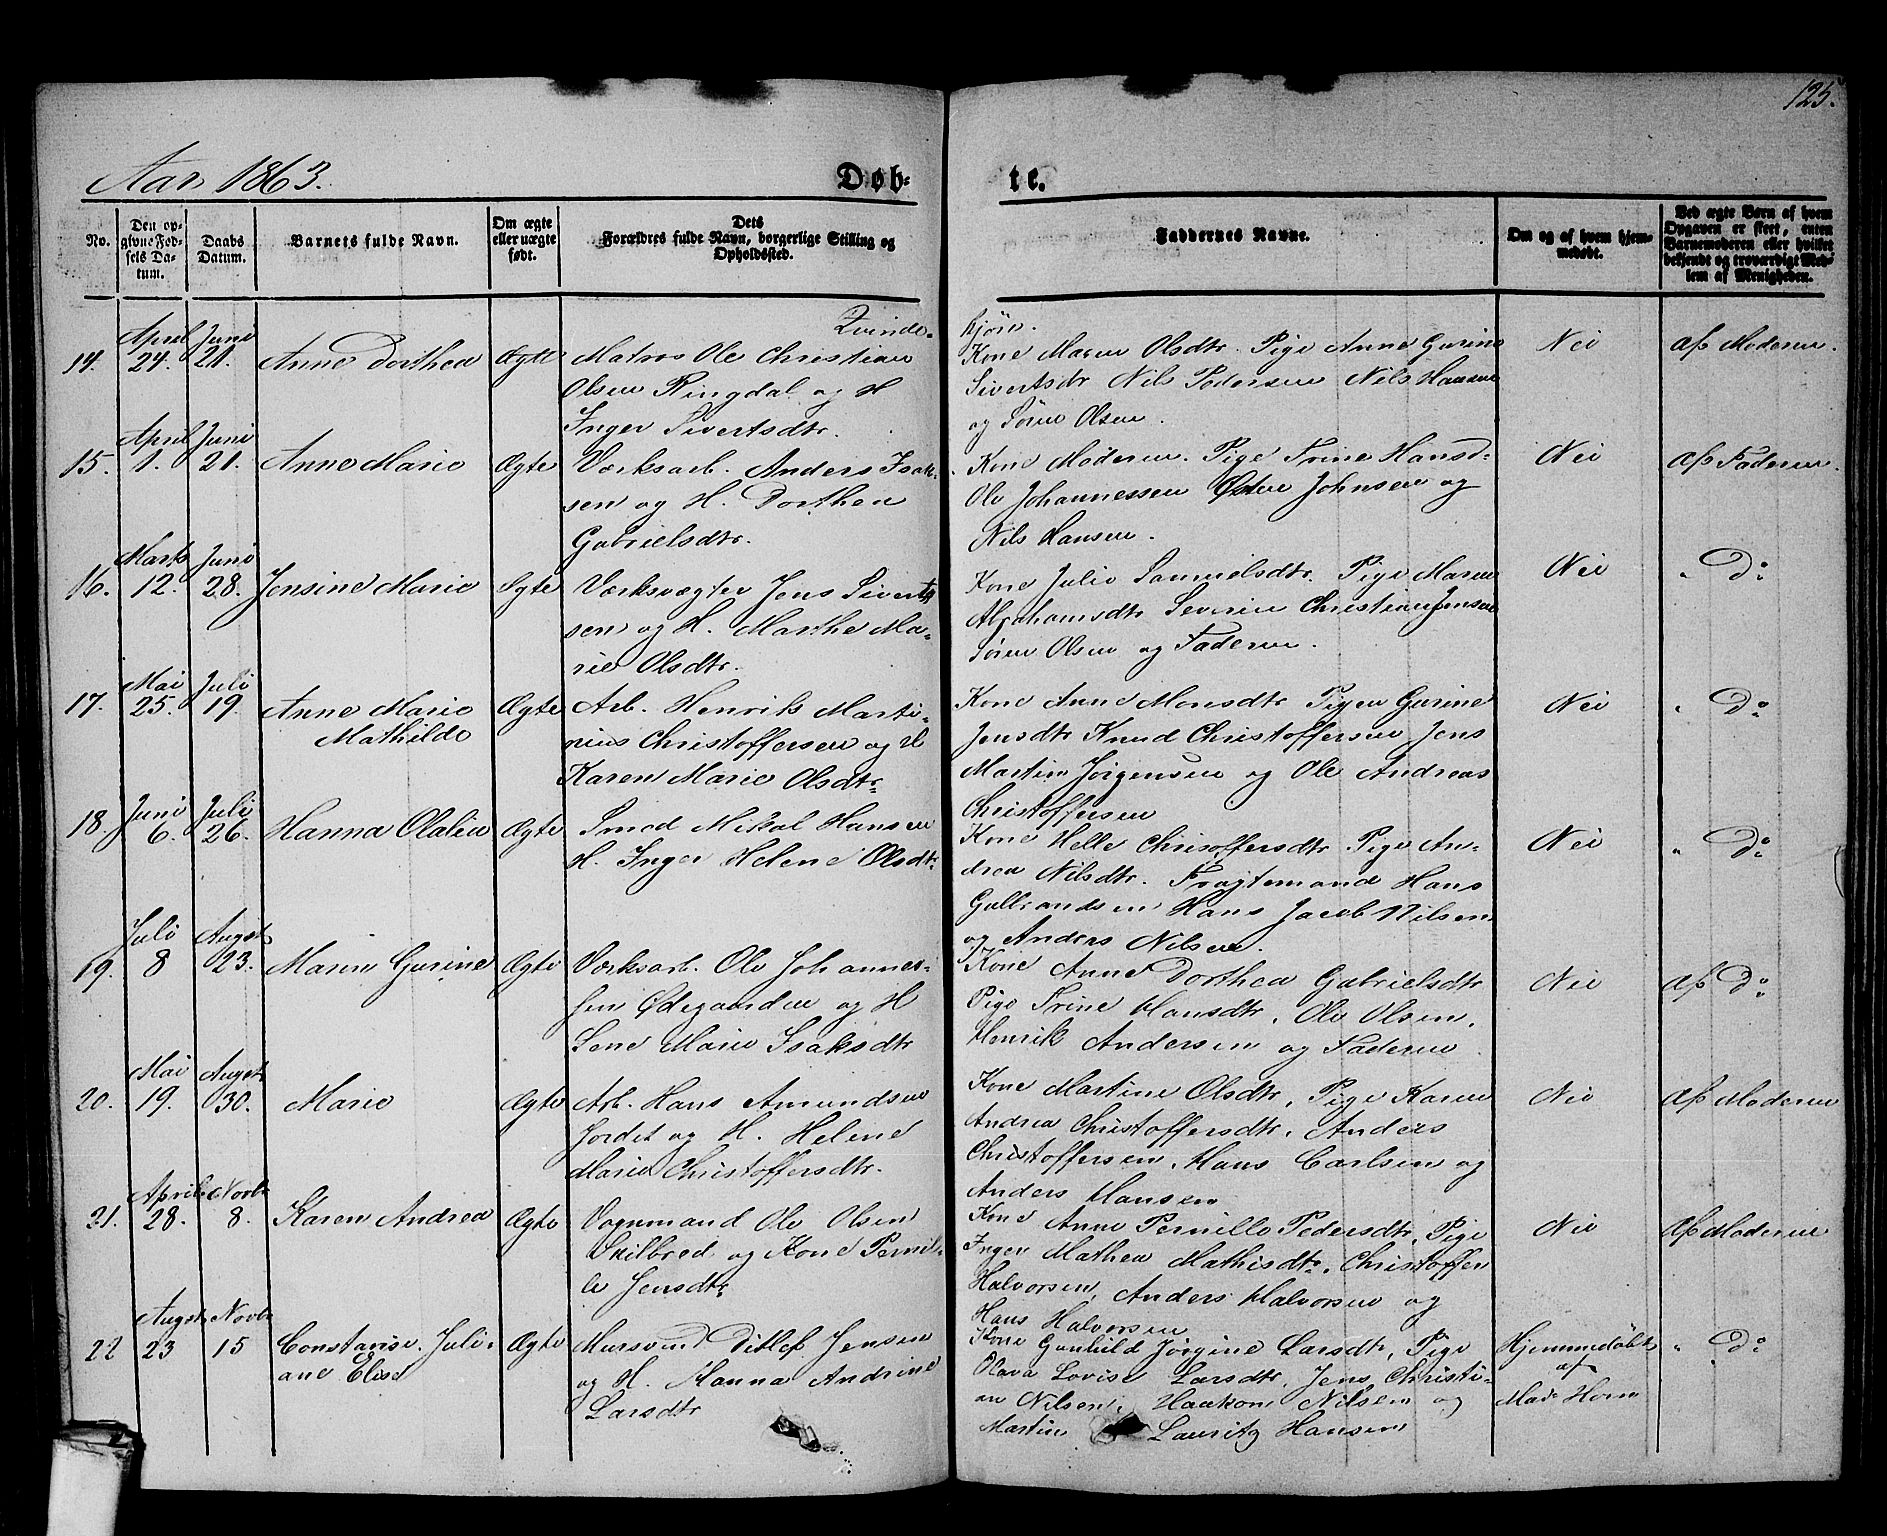 125.
Aar 1863.
Døb-
te.
No.
Den op-
givne Fød-
sels Da-
tum.
Daabs
Datum.
Barnets fulde Navn.
Om ægte
eller uægte
født.
Dets
Forældres fulde Navn, borgerlige Stilling og
Opholdssted.
Faddernes Navne.
Om og af hvem hjem-
medøbt.
Ved ægte Børn af hvem
Opgaven er skeet, enten
Barnemoderen eller hvilket
bekjendt og troværdigt Med-
lem af Menigheden.
Qvinde-
kjøn.
14.
April
24.
Juni
21.
Anne Dorthea
Ægte
Matros Ole Christian
Olsen Ringdal og H
Inger Sivertsdtr.
Kone Maren Olsdtr. Pige Anne Gurine
Sivertsdtr Nils Pedersen Nils Hansen
og Søren Olsen.
Nei
af Moderen.
15.
April
1.
Juni
21.
Anne Marie
Ægte
Værksarb. Anders Isak-
sen og H. Dorthea
Gabrielsdtr.
Kone Moderen. Pige Trine Hansd-
Ole Johannessen Johnsen og
Nils Hansen.
Nei
af Faderen.
16.
Marts
12.
Juni
28.
Jensine Marie
Ægte
Værksvægter Jens Siverts
sen og H. Marthe Ma-
rie Olsdtr.
Kone Julie Samuelsdtr. Pige Maren
Abrahamsdtr Severin Christian Jensen
Søren Olsen og Faderen.
Nei
" Do
17.
Mai
25.
Juli
19.
Anne Marie
Mathilde
Ægte
Arb. Henrik Marti-
nius Christoffersen og H
Karen Marie Olsdtr
Kone Anne Monsdtr Pigen Gurine
Jensdtr Knud Christoffersen Jens
Martin Jørgensen og Ole Andreas
Christoffersen
Nei
" Do
18.
Juni
6.
Juli
26.
Hanna Olalia
Ægte
Smed Mikal Hansen
H. Inger Helene Olsdtr
Kone Helle Chrisoffersdtr Pige An-
drea Nilsdtr. Fragtemand Hans
Gulbrandsen Hans Jacob Nilsen
og Anders Nilsen.
Nei
" Do
19.
Juli
8
Augst
23.
Maren Gurine
Ægte
Værksarb. Ole Johannes-
sen Ødegaarden og H
Lene Marie Isaksdtr
Kone Anne Dorthea Gabrielsdtr
Pige Trine Hansdtr, Ole Olsen,
Henrik Andersen og Faderen
Nei
af Do
20.
Mai
19.
Augst
30.
Marie
Ægte
Arb. Hans Amundsen
Jordet og H. Helene
Marie Christoffersdtr.
Kone Martine Olsdtr, Pige Karen
Andrea Christoffersdtr, Anders
Christoffersen, Hans Carlsen og
Anders Hansen
Nei
af Moderen
21.
April
28.
Novbr
8.
Karen Andrea
Ægte
Vognmand Ole Olsen
Skilbred og Kone Pernil-
le Jensdtr
Kone Anne Pernille Pedersdtr, Pige
Inger Mathea Mathisdtr, Christoffer
Halvorsen, Anders Halvorsen og
Hans Halvorsen
Nei
af Moderen
22
Augst
23
Novbr
15
Constance Juli-
ane Elise
Ægte
Mursvend Ditlef Jensen
og H. Hanna Andrine
Larsdtr
Kone Gunhild Jørgine Larsdtr, Pige
Olava Lovise Larsdtr, Jens Christi-
an Nilsen, Haakon Nilsen og
Martin Lauritz Hansen
Hjemmedøbt
af
Mad. Horn
" Do